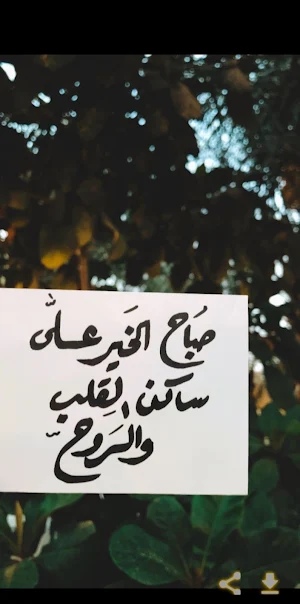 صُبَاح الخَير علىّ
ساكن القِلب
والرَوحّ